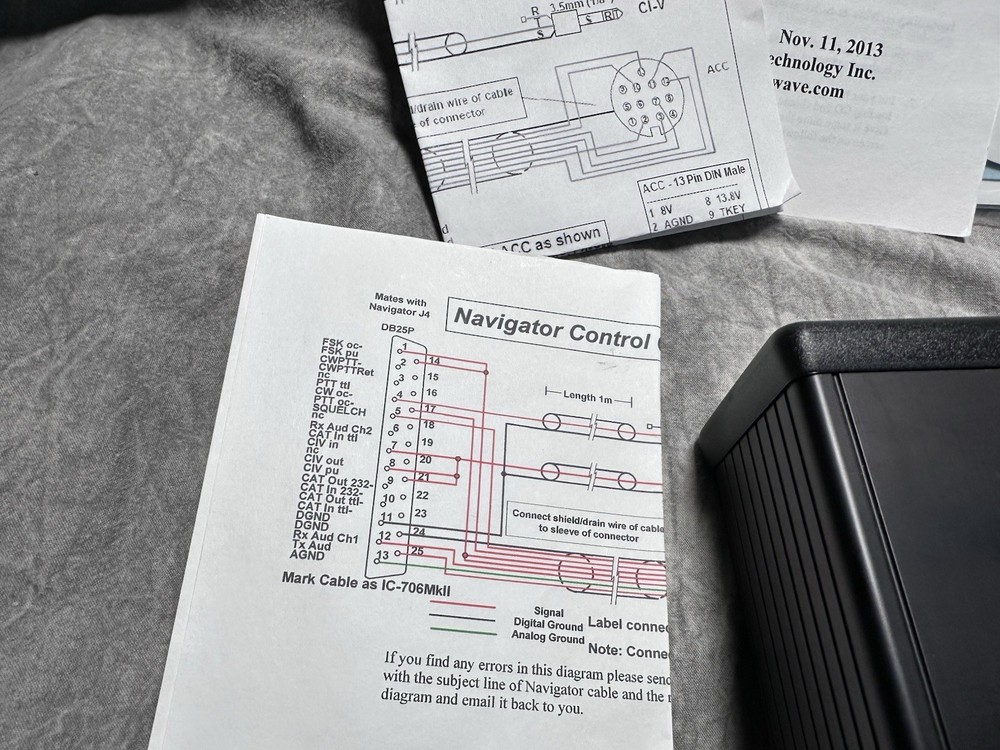 R 3.5mm
S S R T CI-V
Nov. 11, 2013
echnology Inc.
wave.com
ACC
/drain wire of cable
of connector
9 10 11 12
5 6 7 8
1 2 3 4
ACC - 13 Pin DIN Male
1 8V 8 13.8V
2 AGND 9 TKEY
ACC as shown
Mates with
Navigator J4
DB25P
Navigator Control
FSK oc-
FSK pu
CWPTT-
CWPTTRet
nc
PTT ttl
CW oc-
PTT oc-
SQUELCH
nc
Rx Aud Ch2
CAT In ttl
CIV in
nc
CIV out
CIV pu
CAT Out 232-
CAT In 232-
CAT Out ttl-
CAT In ttl-
DGND
DGND
Rx Aud Ch1
Tx Aud
AGND
1
14
2
15
3
16
4
17
5
18
6
19
7
20
8
21
9
22
10
23
11
24
12
25
13
Length 1m
Connect shield/drain wire of cable
to sleeve of connector
Mark Cable as IC-706MkII
Signal
Digital Ground
Analog Ground
Label connec
Note: Connec
If you find any errors in this diagram please send
with the subject line of Navigator cable and the
diagram and email it back to you.